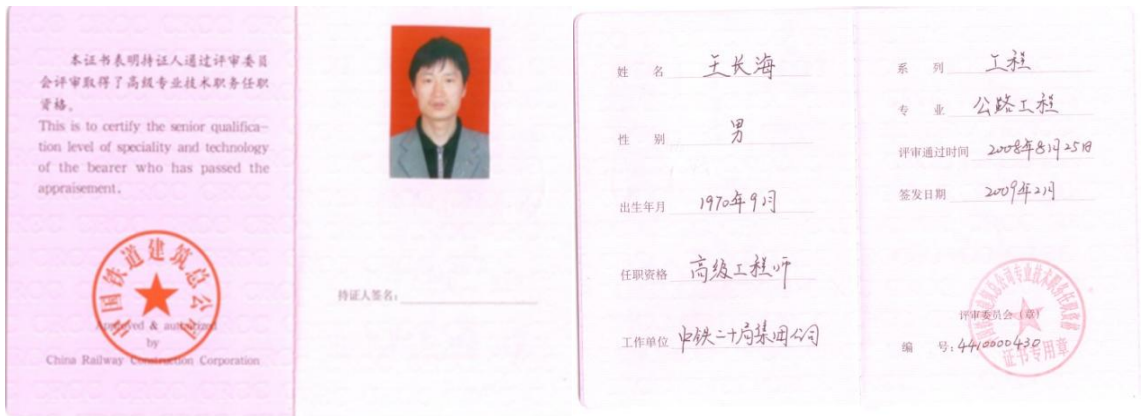 本证书表明持证人通过评审委员
会评审取得了高级专业技术职务任职
资格。
This is to certify the senior qualifica-
tion level of speciality and technology
of the bearer who has passed the
appraisement.
中国铁道建筑总公司
Approved & authorized
by
China Railway Construction Corporation
持证人签名：
姓 名 王长海
性 别 男
出生年月 1970年9月
任职资格 高级工程师
工作单位 中铁二十局集团公司
系 列 工程
专 业 公路工程
评审通过时间 2008年8月25日
签发日期 2009年2月
评审委员会（章）
编 号：4410000430
证书专用章